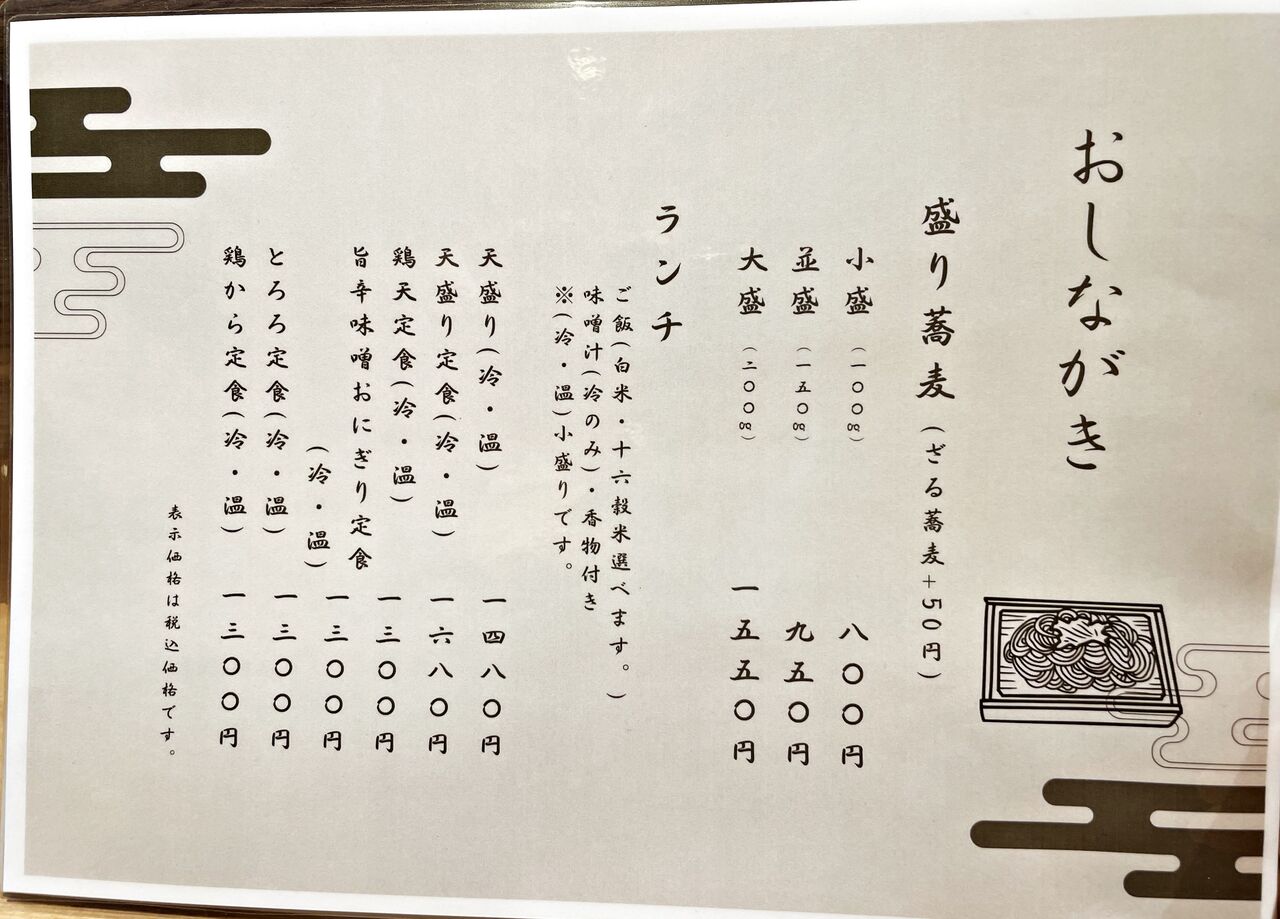 おしながき
盛り蕎麦（ざる蕎麦+50円）
小盛（一〇〇g）八〇〇円
並盛（一五〇g）九五〇円
大盛（二〇〇g）一五五〇円
ランチ
ご飯（白米・十六穀米選べます。）
味噌汁（冷のみ）・香物付き
※（冷・温）小盛りです。
天盛り（冷・温）一四八〇円
天盛り定食（冷・温）一六八〇円
鶏天定食（冷・温）一三〇〇円
旨辛味噌おにぎり定食
（冷・温）一三〇〇円
とろろ定食（冷・温）一三〇〇円
鶏から定食（冷・温）一三〇〇円
表示価格は税込価格です。